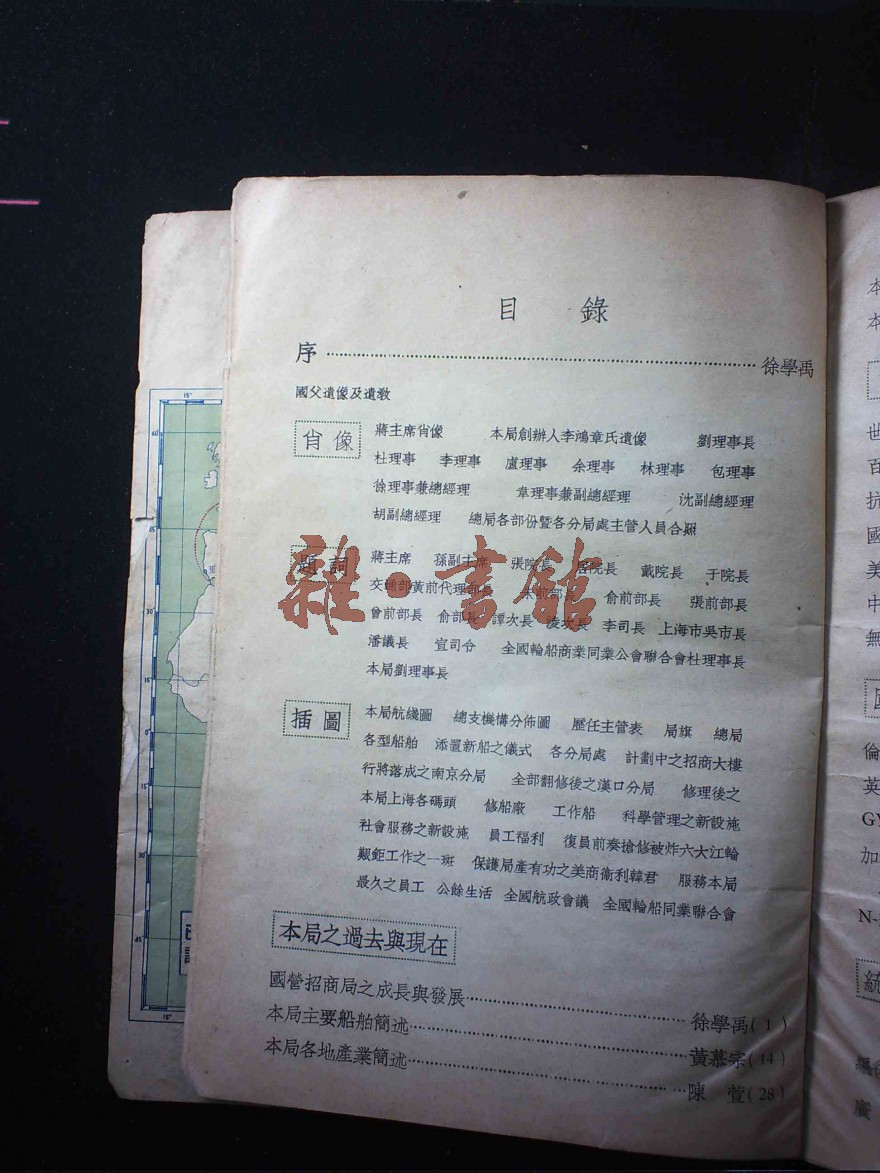 目 錄
序 徐學禹
國父遺像及遺教
肖像 蔣主席肖像 本局創辦人李鴻章氏遺像 劉理事長
杜理事 李理事 盧理事 余理事 林理事 包理事
徐理事兼總經理 韋理事兼副總經理 沈副總經理
胡副總經理 總局各部份暨各分局處主管人員合照
題詞 蔣主席 孫副主席 張院長 居院長 戴院長 于院長
交通部黃前代理部長 朱前部長 俞前部長 張前部長
曾前部長 俞部長 譚次長 凌次長 李司長 上海市吳市長
潘議長 宣司令 全國輪船商業同業公會聯合會杜理事長
本局劉理事長
插圖 本局航綫圖 總支機構分佈圖 歷任主管表 局旗 總局
各型船舶 添置新船之儀式 各分局處 計劃中之招商大樓
行將落成之南京分局 全部翻修後之漢口分局 修理後之
本局上海各碼頭 修船廠 工作船 科學管理之新設施
社會服務之新設施 員工福利 復員前奏搶修被炸六大江輪
艱鉅工作之一班 保護局產有功之美商衛利韓君 服務本局
最久之員工 公餘生活 全國航政會議 全國輪船同業聯合會
本局之過去與現在
國營招商局之成長與發展 徐學禹(1)
本局主要船舶簡述 黃慕宗(14)
本局各地產業簡述 陳 萱(28)
雜·書館
本
本
世
百
抗
國
美
中
無
倫
英
GY
加
N-
統
廣
15°
60
45
30
15
0
15
30
45
15°